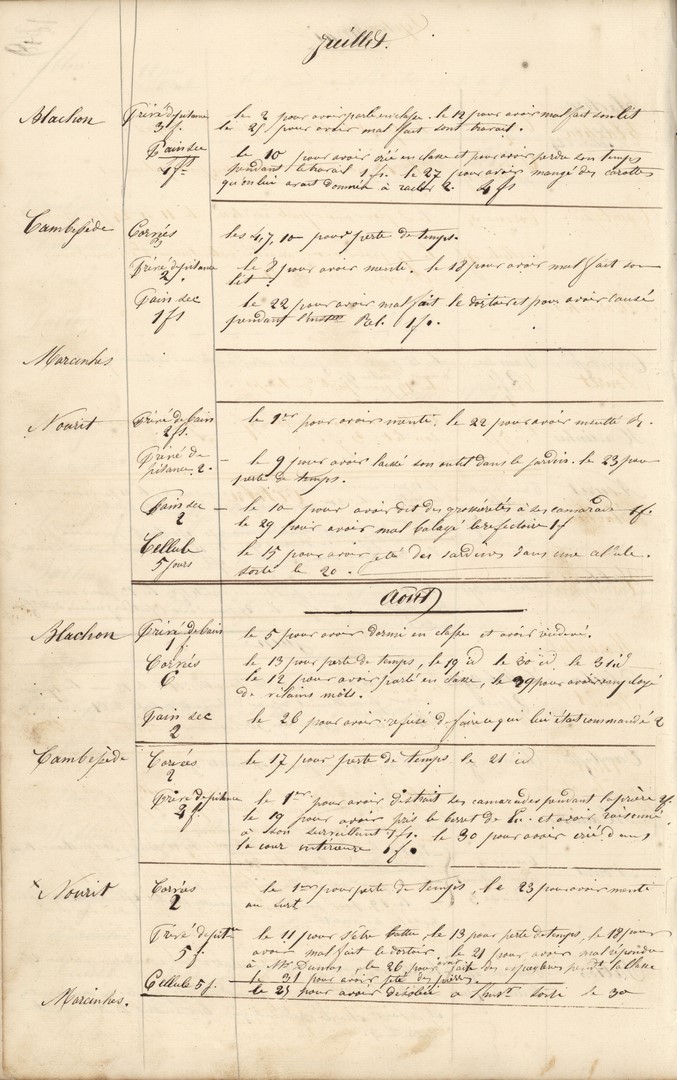 Juillet.
Blachon Privé de pitance le 2 pour avoir parlé en classe. le 12 pour avoir mal fait son lit
3 f. le 25 pour avoir mal fait son travail.
Pain sec le 10 pour avoir crié en classe et pour avoir perdu son temps
4 fs pendant le travail 1 fs. le 27 pour avoir mangé des carottes
qu'on lui avait données à racler 2. 4 fs
Cambessède Corvées les 4, 7, 10 pour perte de temps.
3
Privé de pitance le 8 pour avoir menti. le 18 pour avoir mal fait son
2. lit
Pain sec le 22 pour avoir mal fait le dortoir et pour avoir causé
1 fs pendant Rel. 1 f.
Marcenhes
Nourit Privé de bain le 1er pour avoir menti. le 22 pour avoir menti
2 fs.
Privé de – le 9 pour avoir laissé son outil dans le jardin. le 23 pour
pitance. 2. perte de temps.
Pain sec – le 10 pour avoir dit des grossièretés à ses camarades 1 f.
2 le 29 pour avoir mal balayé le réfectoire 1 f
Cellule le 15 pour avoir des sardines dans une
5 jours sorti le 20.
Août
Blachon Privé de bain le 5 pour avoir dormi en classe et avoir
1 f.
Corvées le 13 pour perte de temps, le 19 id le 30 id. le 31 id
6 le 12 pour avoir parlé en classe, le 29 pour avoir employé
de vilains mots.
Pain sec le 26 pour avoir refusé de faire ce qui lui était commandé 2
2
Cambessède Corvées le 17 pour perte de temps le 21 id
2
Privé de pitance le 1er pour avoir distrait ses camarades pendant la prière 2 f.
4 fs. le 19 pour avoir pris le beret de et avoir raisonné
à son surveillant 1 fs. le 30 pour avoir crié dans
la cour intérieure 1 f.
x Nourit Corvées le 1er pour perte de temps, le 23 pour avoir menti
2 au
Privé de pitce le 11 pour s'être battu, le 13 pour perte de temps, le 18 pour
5 f. avoir mal fait le dortoir, le 21 pour avoir mal répondu
à Mr Dumas, le 26 pour avoir fait des espiègleries pendt la classe
le 31 pour avoir jeté des pierres.
Cellule 5 j. le 25 pour avoir désobéi à sorti le 30
Marcenhes.